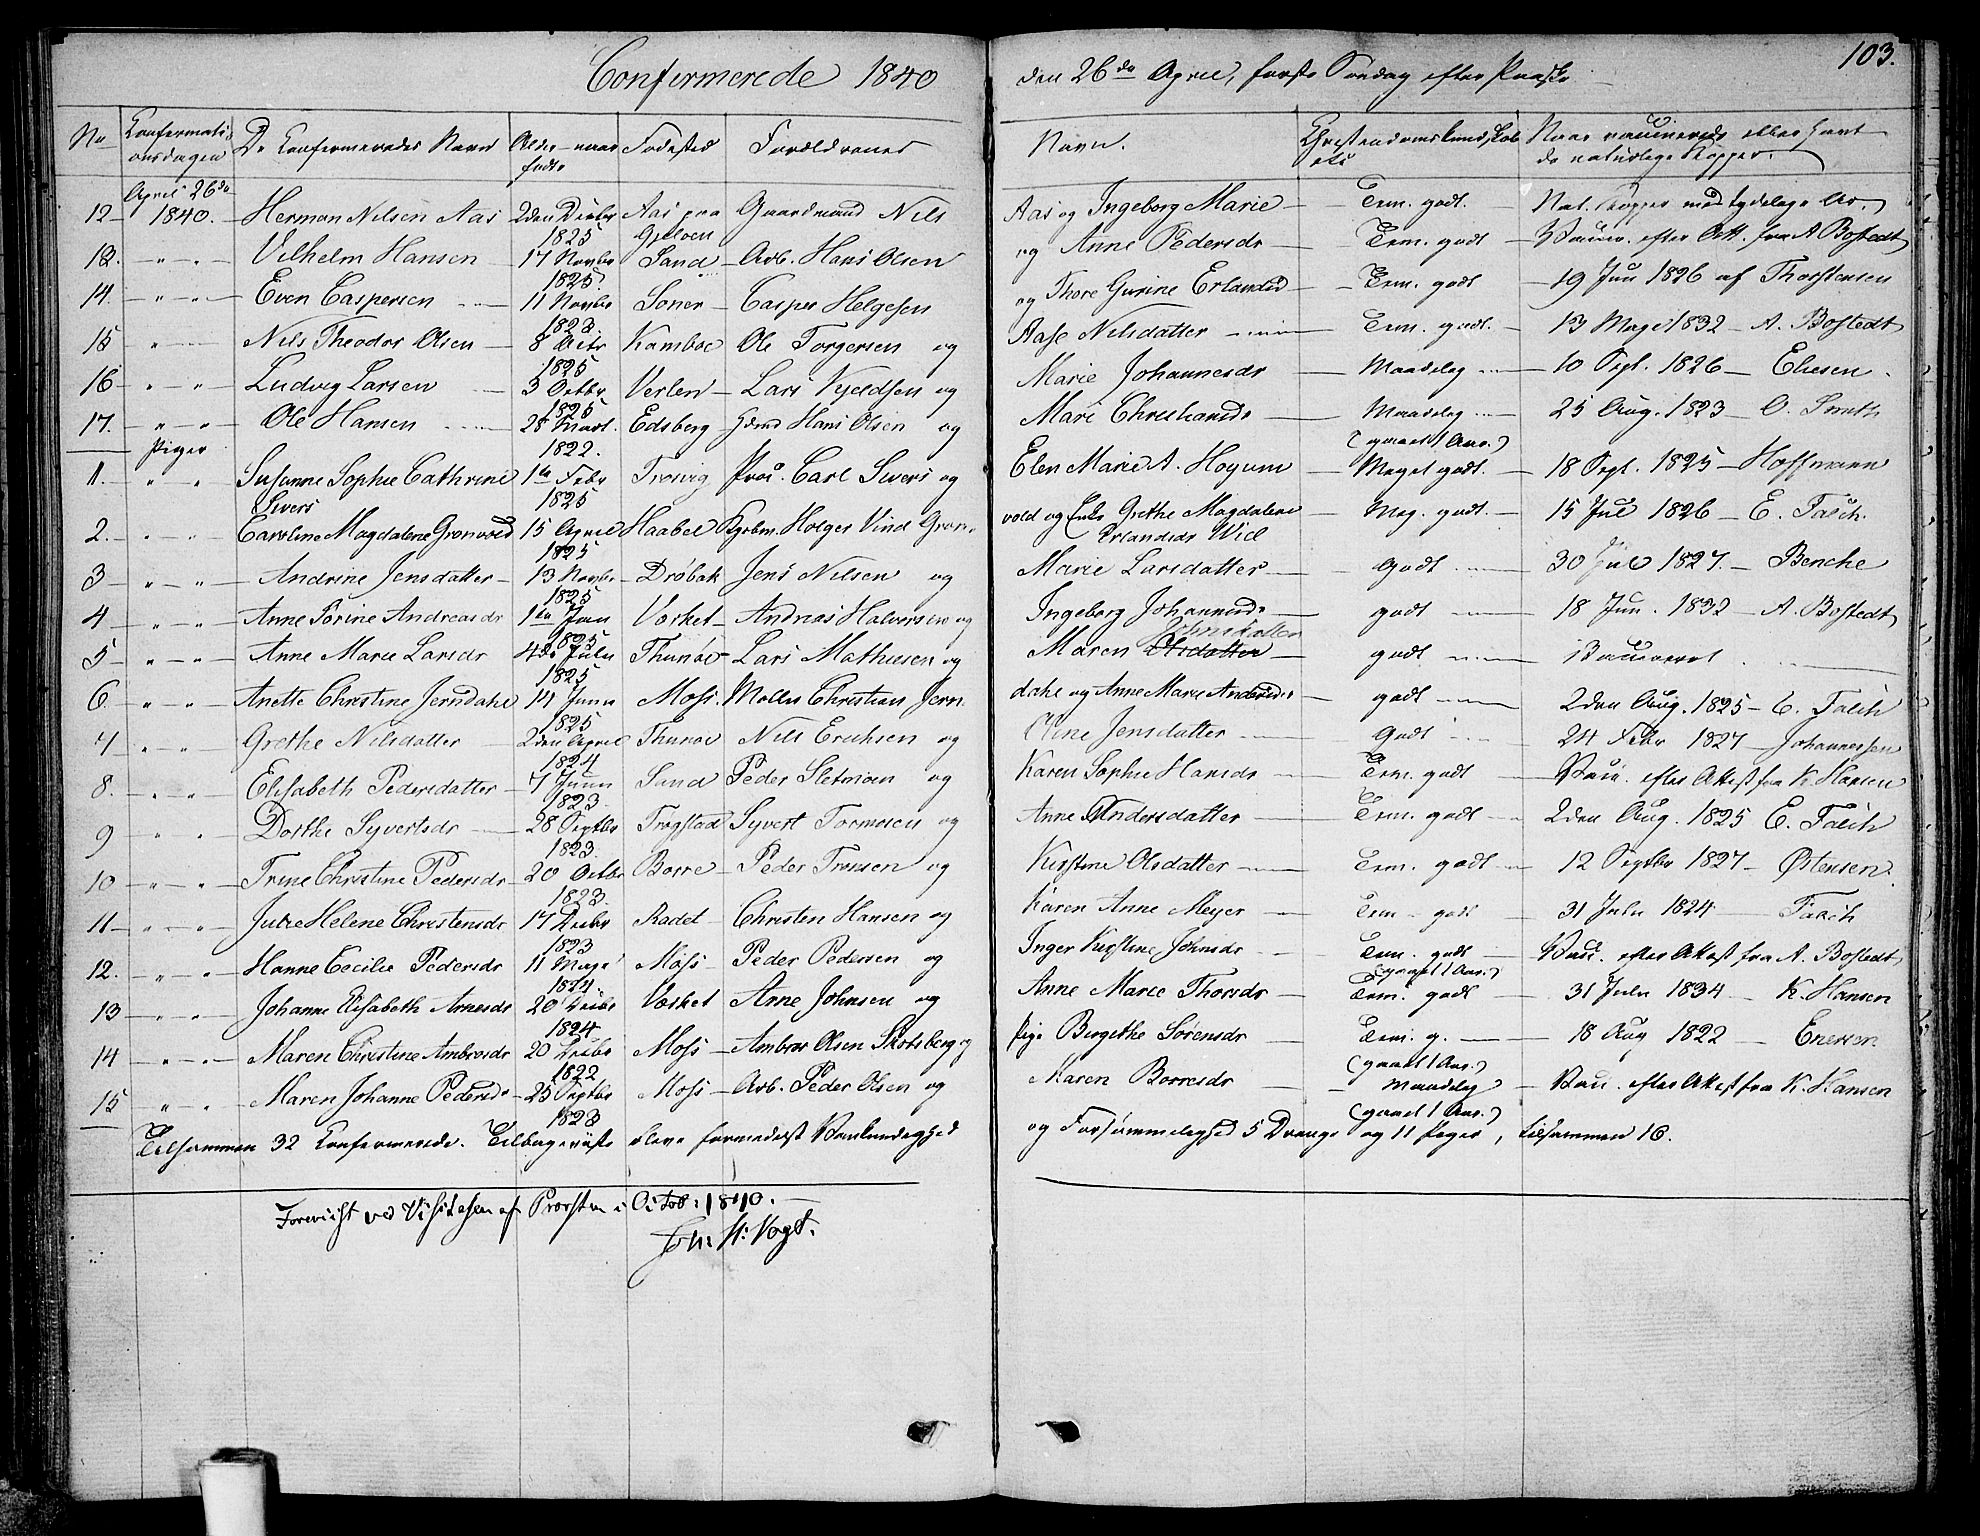 Confermerede 1840 den 26de April, første Søndag efter Paaske 103.
No Confermati- De Confermeredes Navn Alder naar Fødested Forældrenes Navn. Christendomskundskab Naar vaccinerede eller havt
onsdagen født de naturlige Kopper.
April 26de
12 1840. Herman Nilsen Aas 2den Decbr Aas paa Gaardmand Nils Aas og Ingeborg Marie Tem. godt. Nat. Kopper med tydelige Ar.
1825 Gjeløen
13. " " Vilhelm Hansen 17 Novbr Sand Arb. Hans Olsen og Anne Pedersdr Tem. godt Vaccin. efter Att. fra A Bostedt
1825.
14. " " Even Caspersen 11 Novbr Soner Casper Helgesen og Thore Gurine Erlandsd Tem. godt 19 Jun 1826 af Thorstensen
1823.
15 " Nils Theodor Olsen 8 Octr Kamboe Ole Torgersen og Aase Nilsdatter Tem. godt. 13 Mage 1832 A. Bostedt
1825
16 " " Ludvig Larsen 3 Octbr Verlen Lars Kjeldsen og Marie Johannesdr Maadelig 10 Sept. 1826 Eliesen
1825
17. " " Ole Hansen 28 Mart. Edsberg Hans Olsen og Mari Christiansdr Maadelig 25 Aug. 1823 O. Smith
1822. (gaaet 1 Aar.)
Piger
1. " " Susanne Sophie Cathrine 1ste Febr Trosvig Carl Sivers og Elen Marie A. Hoyum Meget godt. 18 Sept. 1825 Hoffmann
Sivers 1825
2. " " Caroline Magdalene Grønvold 15 April Haabel Holger Vind Grøn- vold og Grethe Magdalene Meg. godt. 15 Jul 1826 E. Falch.
1825 Erlandsdr Wid
3 " " Andrine Jensdatter 13 Novbr Drøbak Jens Nilsen og Marie Larsdatter Godt 30 Jul 1827. Benche
1825
4 " " Anne Torine Andreasdr 1ste Jan Vosket Andreas Halversen og Ingeborg Johannesdr godt 18 Jun. 1832 A. Bostedt
1825 Johnsdatter
5 " " Anne Marie Larsdr 4de Julu Thunøe Lars Mathiesen og Maren Olsdatter godt Vaccineret
1825
6. " " Anette Christine Jerndahl 14 Junu Moss. Møller Christian Jern dahl og Anne Marie Andersdr godt 2den Aug. 1825 E. Falch
1825
7 " " Grethe Nilsdatter 2den April Thunøe Nils Erichsen og Oline Jensdatter Godt 24 Febr 1827 Johannessen
1824
8. " " Elisabeth Pedersdatter 7 Junu Sund Peder Sletmoen og Karen Sophie Hansdr Tem. godt Vacc. efter Attest fra K. Hansen
1823.
9 " " Dorthe Syvertsdr 28 Septbr Trøgstad Syvert Tormosen og Anne Andersdatter Tem. godt 2den Aug. 1825 E. Falch
1823.
10 " " Trine Christine Pedersdr 20 Octbr Borre Peder Tronsen og Kirstine Olsdatter Tem. godt 12 Septbr 1827 Østensen.
1823.
11 " " Julie Helene Christensdr 17 Decbr Radet Christen Hansen og Karen Anne Meyer Tem. godt 31 Julu 1824 Falch
1823
12. " " Hanne Cecilie Pedersdr 11 Mage Moss Peder Pedersen og Inger Kirstine Johnsdr Tem. godt Vacc. efter Attest fra A. Bostedt
1824. (gaaet 1 Aar.)
13 " " Johanne Elisabeth Arnesdr 20 Decbr Vosket Arne Johnsen og Anne Marie Thorsdr Tem. godt 31 Julu 1834 K. Hansen
1824
14 " " Maren Christine Ambrosdr 20 Decbr Moss Ambros Olsen Skotsberg og Pige Birgethe Sørensdr Tem. g. 18 Aug 1822 Enersen.
1822 (gaaet 1 Aar.)
15 " " Maren Johanne Pedersdr 25 Septbr Moss Arb. Peder Olsen og Maren Borresdr maadelig Vacc. efter Attest fra K. Hansen
1823 (gaaet 1 Aar.)
Tilsammen 32 Confermerede. Tilbageviiste bleve formedelst Vankundighed og Forsømmelighed 5 Drenge og 11 Piger, tilsammen 16.
Foreviist ved Visitatsen af Provsten i Octob: 1840.
Joh. H: Vogt.